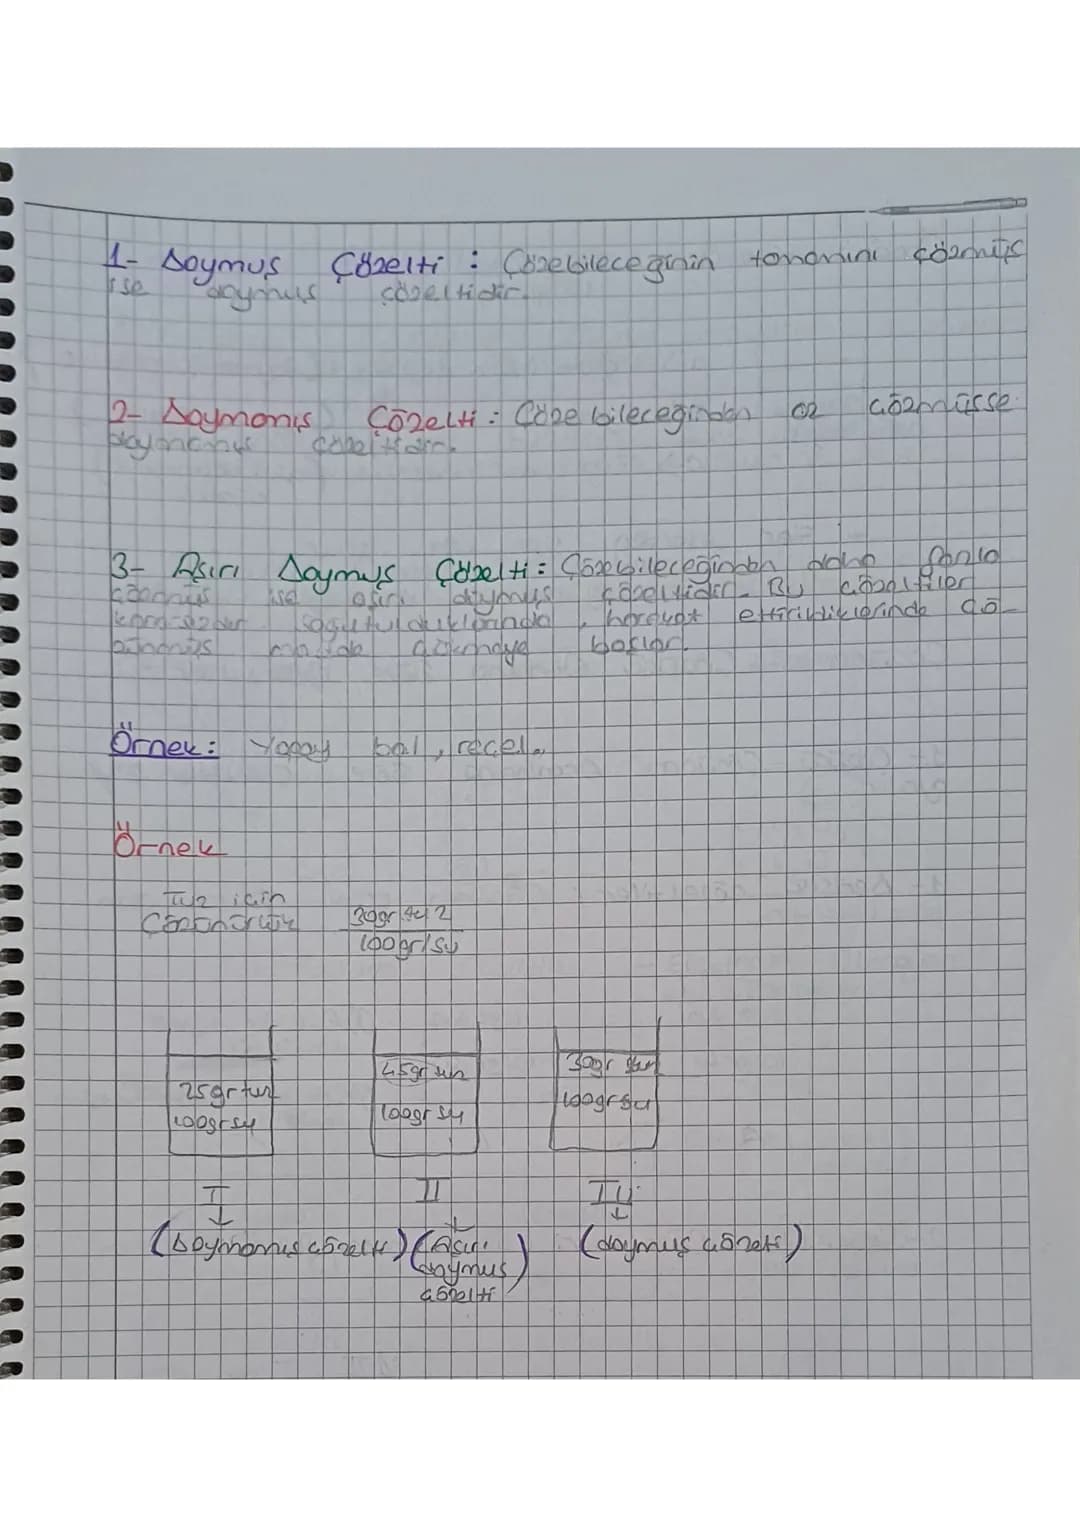 1- Doymus Çözelti : Çözebileceğinin tamamını çözmüş
ise doymuş çözeltidir.
2- Doymamış Çözelti : Çözebileceğinden az çözmüsse
doymamış çözeltidir.
3- Aşırı Doymuş Çözelti : Çözebileceğinden daha fazla
çözmüş ise aşırı doymuş çözeltidir. Bu çözeltiler
soğutulduklarında, hareket ettirildiklerinde çö-
zünmüş madde çökmeye başlar.
Örnek: Yapay bal, reçel..
Örnek
Tuz için
Çözünürlük 30gr tuz
100gr/su
25gr tuz 45gr tuz 30gr tuz
100gr su 100gr su 100gr su
I II III
(Doymamış çözelti) (Aşırı doymuş çözelti) (doymuş çözelti)